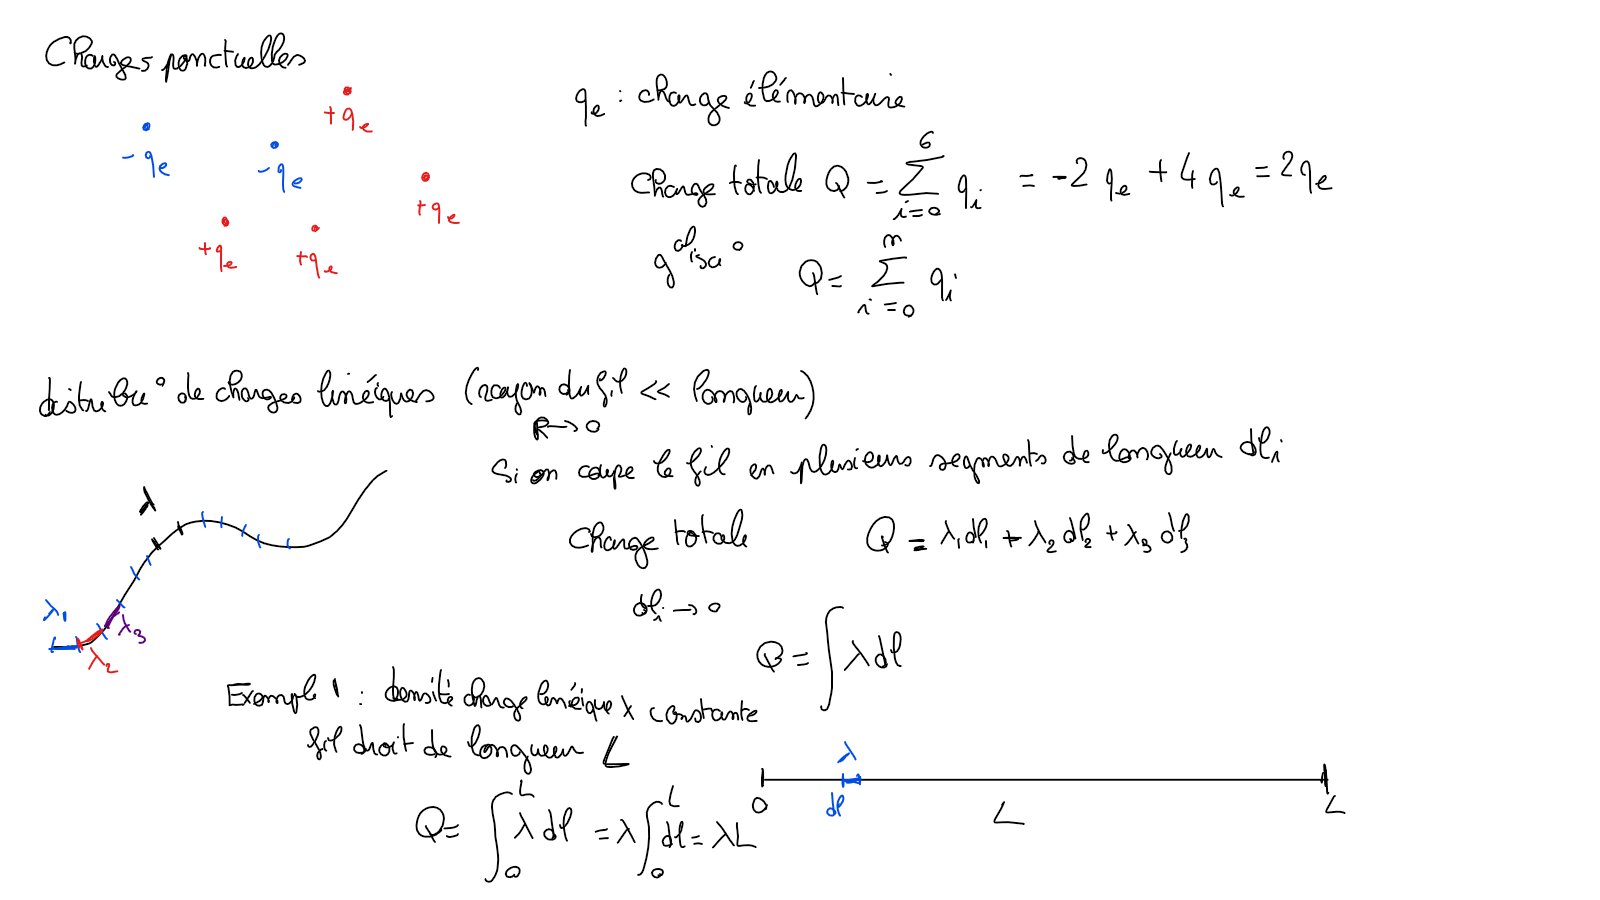 Charges ponctuelles
+qe
-qe
-qe
+qe
+qe
+qe
qe : charge élémentaire
Charge totale Q = ∑_{i=0}^{6} qi = -2 qe + 4 qe = 2 qe
g^al isa° Q = ∑_{i=0}^{n} qi
distribu° de charges linéiques (rayon du fil << longueur)
R → 0
Si on coupe le fil en plusieurs segments de longueur dl_i
λ
Charge totale Q = λ₁dl₁ + λ₂dl₂ + λ₃dl₃
dl_i → 0
λ₁
λ₃
λ₂
Q = ∫ λ dl
Exemple 1 : densité charge linéique λ constante
fil droit de longueur L
λ
0 dl L L
Q = ∫_0^L λ dl = λ ∫_0^L dl = λL